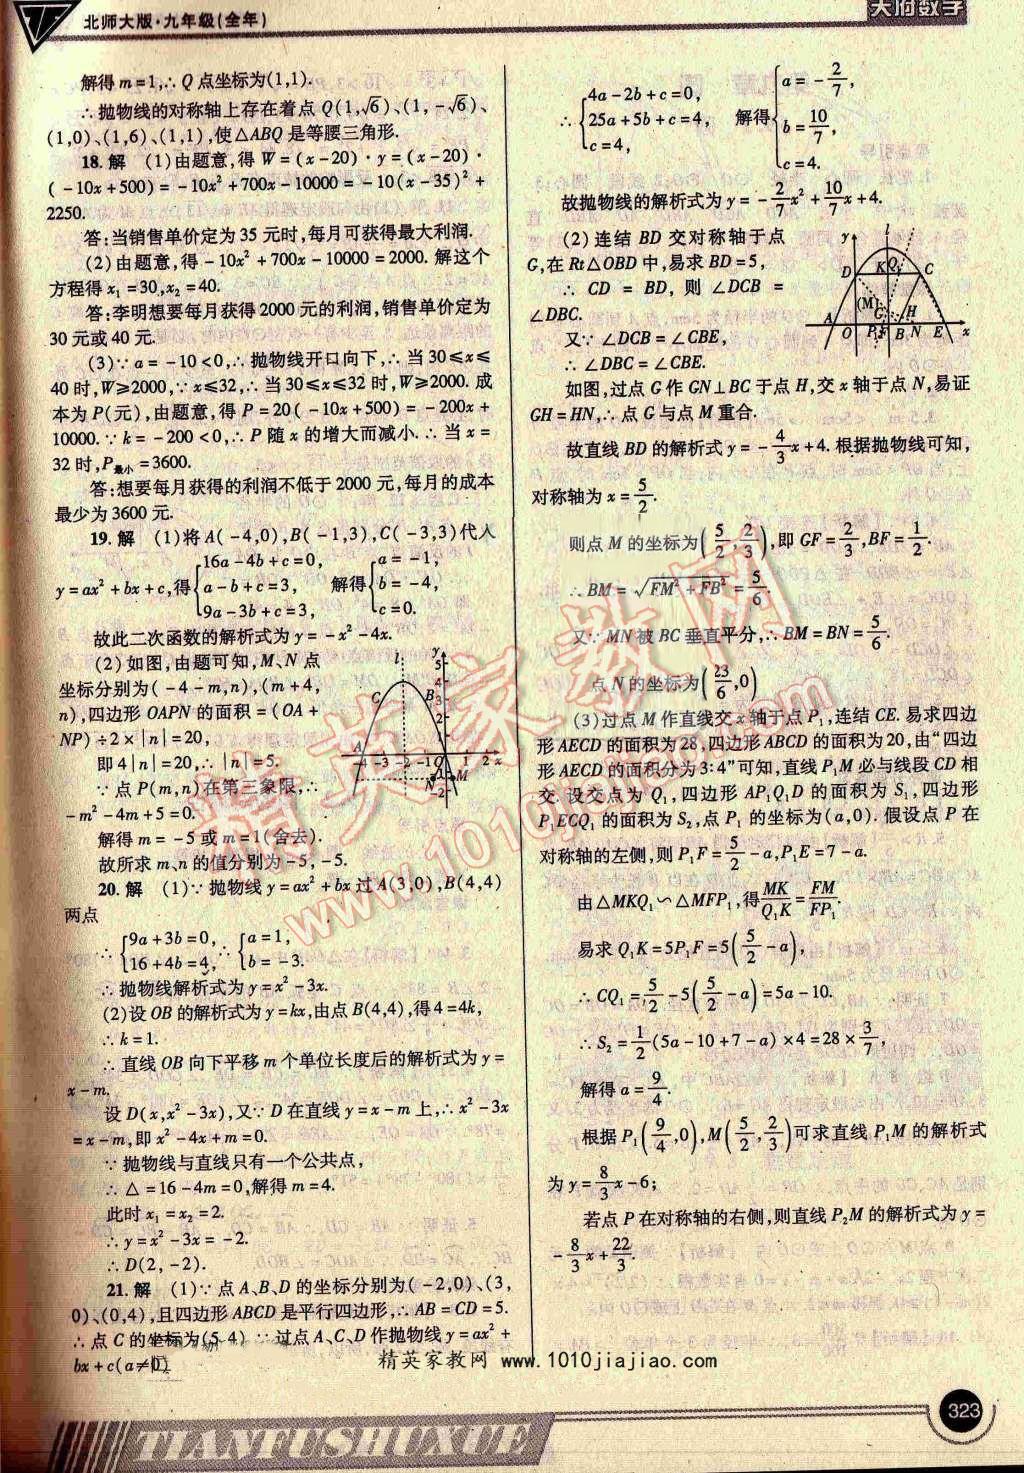 北师大版·九年级(全年)
天府数学
解得m=1,∴Q点坐标为(1,1).
∴抛物线的对称轴上存在着点Q(1,√6)、(1,-√6)、
(1,0)、(1,6)、(1,1),使△ABQ是等腰三角形.
18.解 (1)由题意,得W=(x-20)·y=(x-20)·
(-10x+500)=-10x²+700x-10000=-10(x-35)²+
2250.
答:当销售单价定为35元时,每月可获得最大利润.
(2)由题意,得-10x²+700x-10000=2000.解这个
方程得x₁=30,x₂=40.
答:李明想要每月获得2000元的利润,销售单价定为
30元或40元.
(3)∵a=-10<0,∴抛物线开口向下,∴当30≤x≤
40时,W≥2000,∵x≤32,∴当30≤x≤32时,W≥2000.成
本为P(元),由题意,得P=20(-10x+500)=-200x+
10000.∵k=-200<0,∴P随x的增大而减小.∴当x=
32时,P最小=3600.
答:想要每月获得的利润不低于2000元,每月的成本
最少为3600元.
19.解 (1)将A(-4,0),B(-1,3),C(-3,3)代入
y=ax²+bx+c,得{16a-4b+c=0, a-b+c=3, 9a-3b+c=3, 解得{a=-1, b=-4, c=0.
故此二次函数的解析式为y=-x²-4x.
(2)如图,由题可知,M、N点
坐标分别为(-4-m,n),(m+4,
n),四边形OAPN的面积=(OA+
NP)÷2×|n|=20,
即4|n|=20,∴|n|=5.
∵点P(m,n)在第三象限,∴
-m²-4m+5=0.
解得m=-5或m=1(舍去).
故所求m、n的值分别为-5,-5.
20.解 (1)∵抛物线y=ax²+bx过A(3,0),B(4,4)
两点
∴{9a+3b=0, 16+4b=4, ∴{a=1, b=-3.
∴抛物线解析式为y=x²-3x.
(2)设OB的解析式为y=kx,由点B(4,4),得4=4k,
∴k=1.
∴直线OB向下平移m个单位长度后的解析式为y=
x-m.
设D(x,x²-3x),又∵D在直线y=x-m上,∴x²-3x
=x-m,即x²-4x+m=0.
∵抛物线与直线只有一个公共点,
∴△=16-4m=0,解得m=4.
此时x₁=x₂=2.
∴y=x²-3x=-2.
∴D(2,-2).
21.解 (1)∵点A、B、D的坐标分别为(-2,0)、(3,
0)、(0,4),且四边形ABCD是平行四边形,∴AB=CD=5.
∴点C的坐标为(5,4) ∵过点A、C、D作抛物线y=ax²+
bx+c(a≠0)
∴{4a-2b+c=0, 25a+5b+c=4, c=4, 解得{a=-2/7, b=10/7, c=4.
故抛物线的解析式为y=-2/7x²+10/7x+4.
(2)连结BD交对称轴于点
G,在Rt△OBD中,易求BD=5,
∴CD=BD,则∠DCB=
∠DBC.
又∵∠DCB=∠CBE,
∴∠DBC=∠CBE.
如图,过点G作GN⊥BC于点H,交x轴于点N,易证
GH=HN,∴点G与点M重合.
故直线BD的解析式y=-4/3x+4.根据抛物线可知,
对称轴为x=5/2.
则点M的坐标为(5/2,2/3),即GF=2/3,BF=1/2.
∴BM=√(FM²+FB²)=5/6
又∵MN被BC垂直平分,∴BM=BN=5/6
点N的坐标为(23/6,0)
(3)过点M作直线交x轴于点P₁,连结CE.易求四边
形AECD的面积为28,四边形ABCD的面积为20,由“四边
形AECD的面积分为3:4”可知,直线P₁M必与线段CD相
交.设交点为Q₁,四边形AP₁Q₁D的面积为S₁,四边形
P₁ECQ₁的面积为S₂,点P₁的坐标为(a,0).假设点P在
对称轴的左侧,则P₁F=5/2-a,P₁E=7-a.
由△MKQ₁∽△MFP₁,得MK/Q₁K=FM/FP₁.
易求Q₁K=5P₁F=5(5/2-a),
∴CQ₁=5/2-5(5/2-a)=5a-10.
∴S₂=1/2(5a-10+7-a)×4=28×3/7,
解得a=9/4.
根据P₁(9/4,0),M(5/2,2/3)可求直线P₁M的解析式
为y=8/3x-6;
若点P在对称轴的右侧,则直线P₂M的解析式为y=
-8/3x+22/3.
精英家教网
www.1010jiajiao.com
精英家教网 www.1010jiajiao.com
TIANFUSHUXUE
323